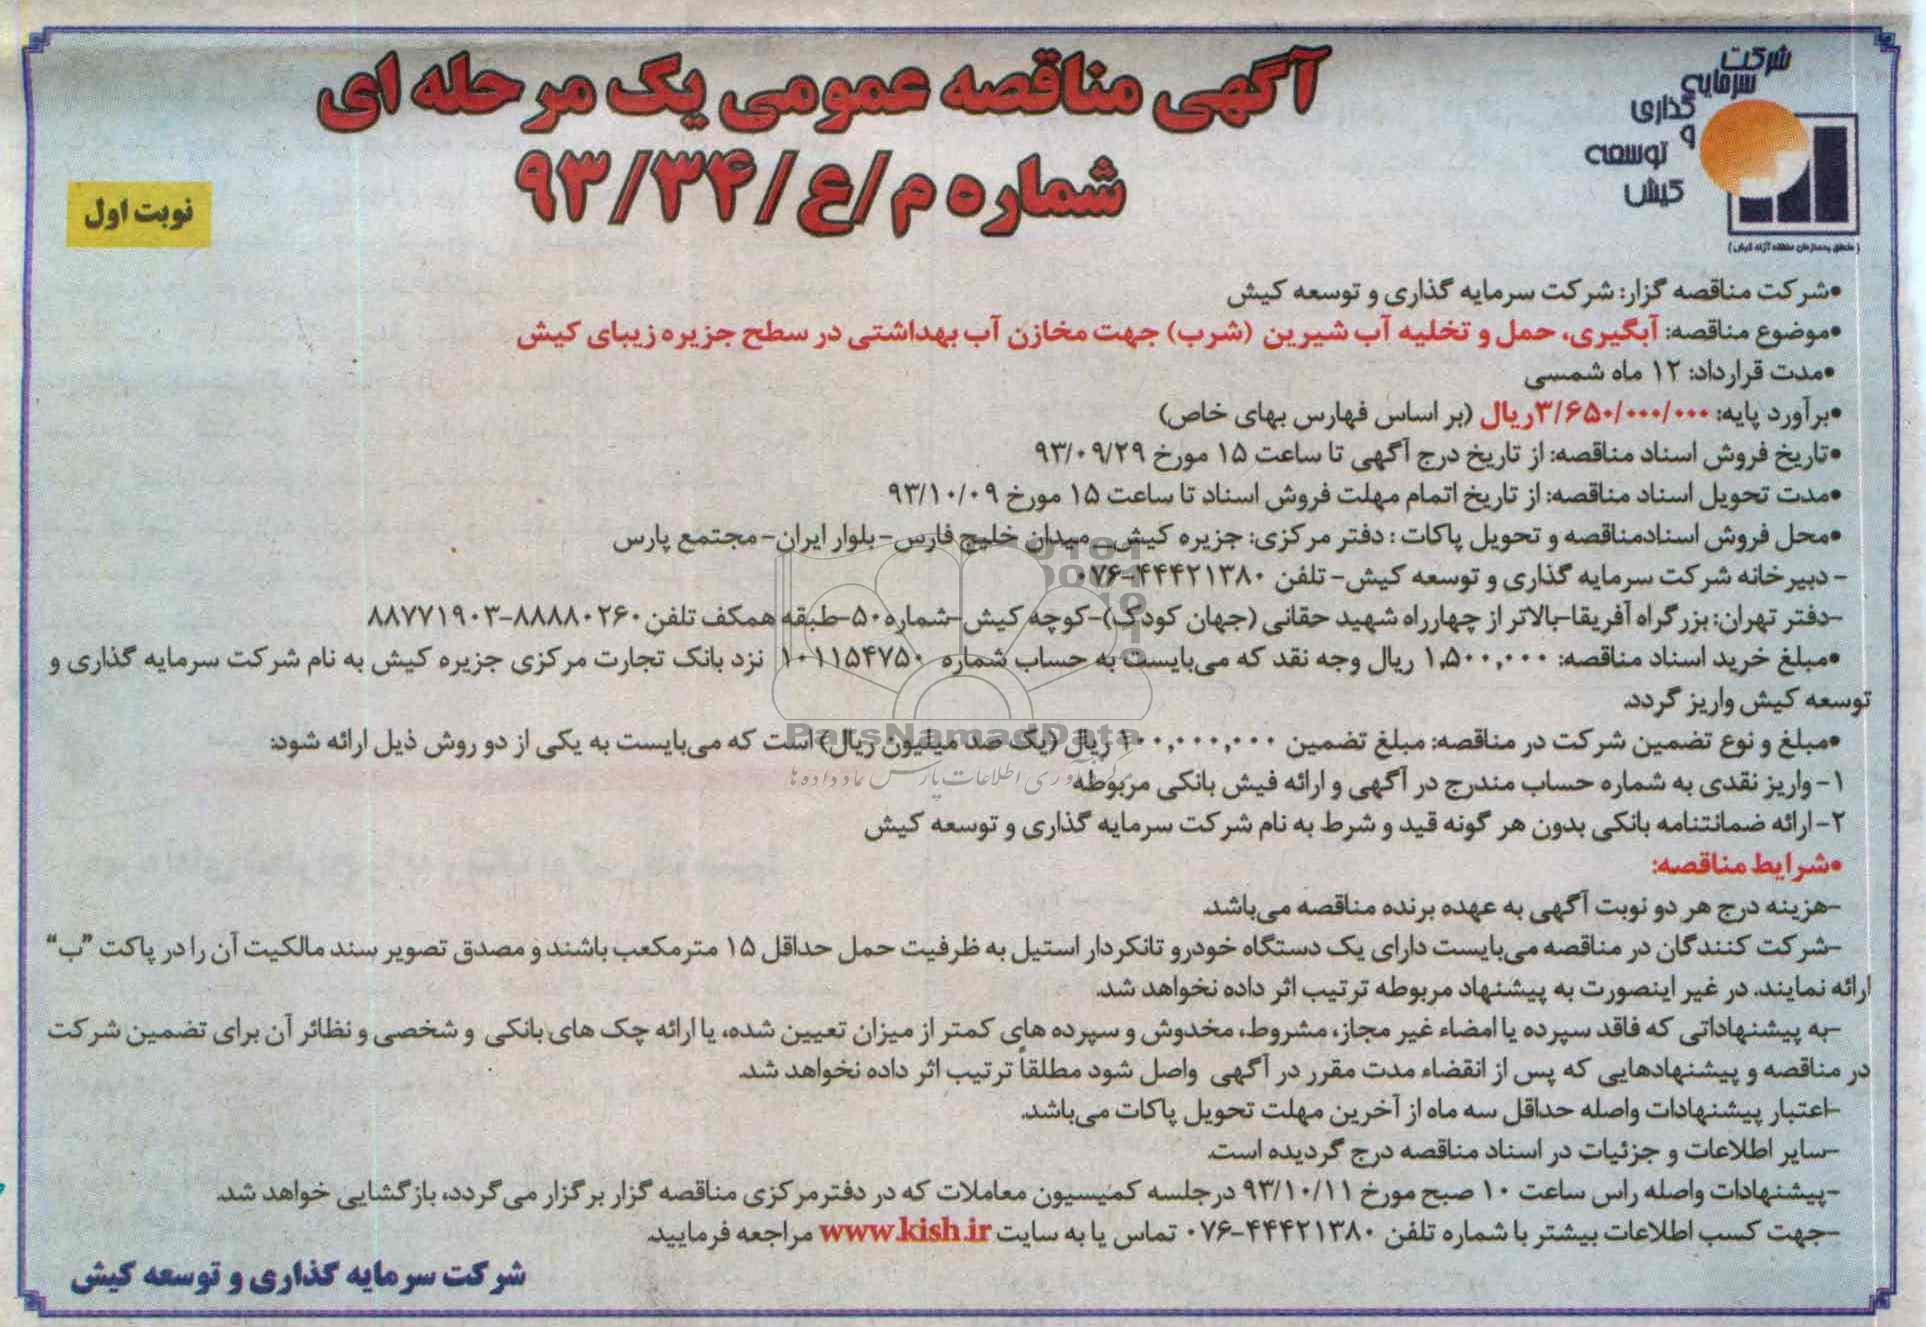 شرکت
سرمایه
گذاری
و
توسعه
کیش
(متعلق به سازمان منطقه آزاد کیش)
آگهی مناقصه عمومی یک مرحله ای
شماره م/ع/۹۳/۳۴
نوبت اول
•شرکت مناقصه گزار: شرکت سرمایه گذاری و توسعه کیش
•موضوع مناقصه: آبگیری، حمل و تخلیه آب شیرین (شرب) جهت مخازن آب بهداشتی در سطح جزیره زیبای کیش
•مدت قرارداد: ۱۲ ماه شمسی
•برآورد پایه: ۳/۶۵۰/۰۰۰/۰۰۰ریال (بر اساس فهارس بهای خاص)
•تاریخ فروش اسناد مناقصه: از تاریخ درج آگهی تا ساعت ۱۵ مورخ ۹۳/۰۹/۲۹
•مدت تحویل اسناد مناقصه: از تاریخ اتمام مهلت فروش اسناد تا ساعت ۱۵ مورخ ۹۳/۱۰/۰۹
•محل فروش اسنادمناقصه و تحویل پاکات : دفتر مرکزی: جزیره کیش_ میدان خلیج فارس- بلوار ایران- مجتمع پارس
- دبیرخانه شرکت سرمایه گذاری و توسعه کیش- تلفن ۴۴۴۲۱۳۸۰-۰۷۶
-دفتر تهران: بزرگراه آفریقا-بالاتر از چهارراه شهید حقانی (جهان کودک)-کوچه کیش-شماره۵۰-طبقه همکف تلفن۸۸۸۸۰۲۶۰-۸۸۷۷۱۹۰۳
•مبلغ خرید اسناد مناقصه: ۱,۵۰۰,۰۰۰ ریال وجه نقد که می‌بایست به حساب شماره ۱۰۱۱۵۴۷۵۰ نزد بانک تجارت مرکزی جزیره کیش به نام شرکت سرمایه گذاری و
توسعه کیش واریز گردد.
•مبلغ و نوع تضمین شرکت در مناقصه: مبلغ تضمین ۱۰۰,۰۰۰,۰۰۰ ریال (یک صد میلیون ریال) است که می‌بایست به یکی از دو روش ذیل ارائه شود:
۱- واریز نقدی به شماره حساب مندرج در آگهی و ارائه فیش بانکی مربوطه
۲- ارائه ضمانتنامه بانکی بدون هر گونه قید و شرط به نام شرکت سرمایه گذاری و توسعه کیش
•شرایط مناقصه:
-هزینه درج هر دو نوبت آگهی به عهده برنده مناقصه می‌باشد.
-شرکت کنندگان در مناقصه می‌بایست دارای یک دستگاه خودرو تانکردار استیل به ظرفیت حمل حداقل ۱۵ مترمکعب باشند و مصدق تصویر سند مالکیت آن را در پاکت "ب"
ارائه نمایند. در غیر اینصورت به پیشنهاد مربوطه ترتیب اثر داده نخواهد شد.
-به پیشنهاداتی که فاقد سپرده یا امضاء غیر مجاز، مشروط، مخدوش و سپرده های کمتر از میزان تعیین شده، یا ارائه چک های بانکی و شخصی و نظائر آن برای تضمین شرکت
در مناقصه و پیشنهادهایی که پس از انقضاء مدت مقرر در آگهی واصل شود مطلقاً ترتیب اثر داده نخواهد شد.
-اعتبار پیشنهادات واصله حداقل سه ماه از آخرین مهلت تحویل پاکات می‌باشد.
-سایر اطلاعات و جزئیات در اسناد مناقصه درج گردیده است.
-پیشنهادات واصله راس ساعت ۱۰ صبح مورخ ۹۳/۱۰/۱۱ درجلسه کمیسیون معاملات که در دفترمرکزی مناقصه گزار برگزار می گردد، بازگشایی خواهد شد.
-جهت کسب اطلاعات بیشتر با شماره تلفن ۴۴۴۲۱۳۸۰-۰۷۶ تماس یا به سایت www.kish.ir مراجعه فرمایید.
شرکت سرمایه گذاری و توسعه کیش
ParsNamadData